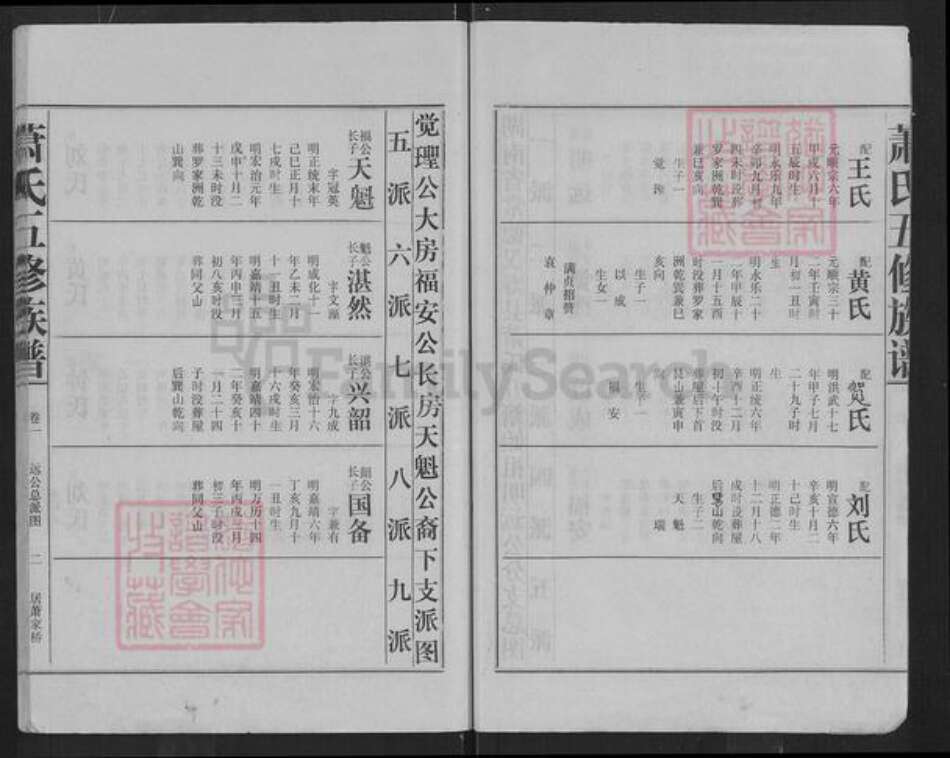 萧氏五修族谱
配
王氏
元顺宗六年
甲戌六月十
五辰时生
明永乐九年
辛卯九月初
四未时没葬
罗家洲乾巽
兼巳亥向
生子一
觉理
配
黄氏
元顺宗三十
二年壬寅时
月初一丑时
生
明永乐二十
二年甲辰十
一月十五酉
时没葬罗家
洲乾巽兼巳
亥向
生子一
以成
生女一
满贞招赘
袁仲章
配
贺氏
明洪武十七
年甲子七月
二十九子时
生
明正统六年
辛酉十二月
初十午时没
葬屋后下首
艮山兼寅申
向
生子一
福安
配
刘氏
明宣德六年
辛亥十月二
十巳时生
明正德二年
十二月十八
戌时没葬屋
后巽山乾向
生子二
天魁
瑞
觉理公大房福安公长房天魁公裔下支派图
五派六派七派八派九派
福公
长子
天魁
字冠英
明正统末年
己巳正月十
七戌时生
明宏治元年
戊申十月二
十三未时没
葬罗家洲乾
山巽向
魁公
长子
湛然
字文藻
明成化十一
年乙未二月
十一丑时生
明嘉靖十五
年丙申三月
初八亥时没
葬同父山
湛公
长子
兴韶
字九成
明宏治十六
年癸亥三月
十六戌时生
明嘉靖四十
二年癸亥十
一月二十四
子时没葬屋
后巽山乾向
韶公
长子
国备
字兼有
明嘉靖六年
丁亥九月十
一丑时生
明万历十四
年丙戌三月
初三子时没
葬同父山
萧氏五修族谱
卷一
远公总派图
二
居萧家桥
FamilySearch